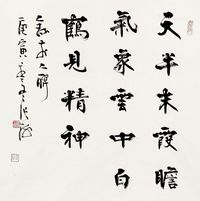 天半朱霞瞻
氣象雲中白
鶴見精神
庚寅